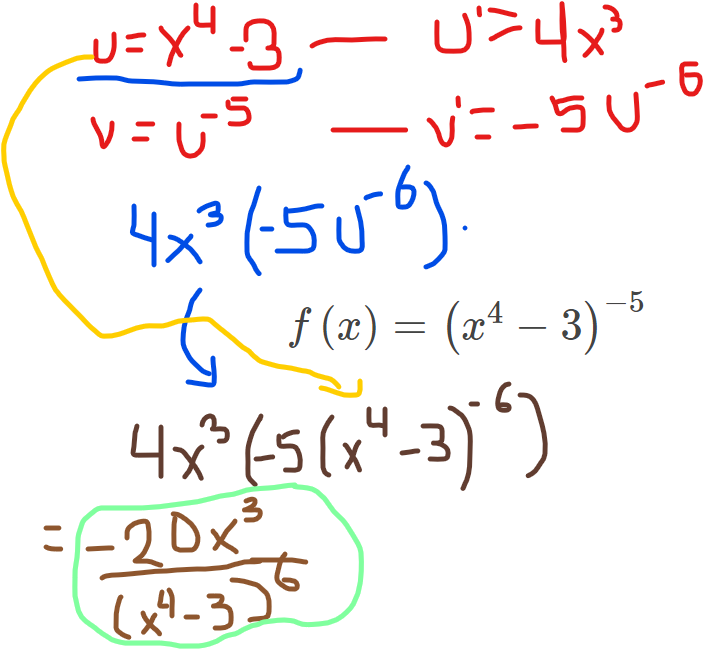 u = x⁴ - 3 — u' = 4x³
v = u⁻⁵ — v' = -5u⁻⁶
4x³(-5u⁻⁶).
f(x) = (x⁴ − 3)⁻⁵
4x³(-5(x⁴ - 3)⁻⁶)
= -20x³/(x⁴-3)⁶